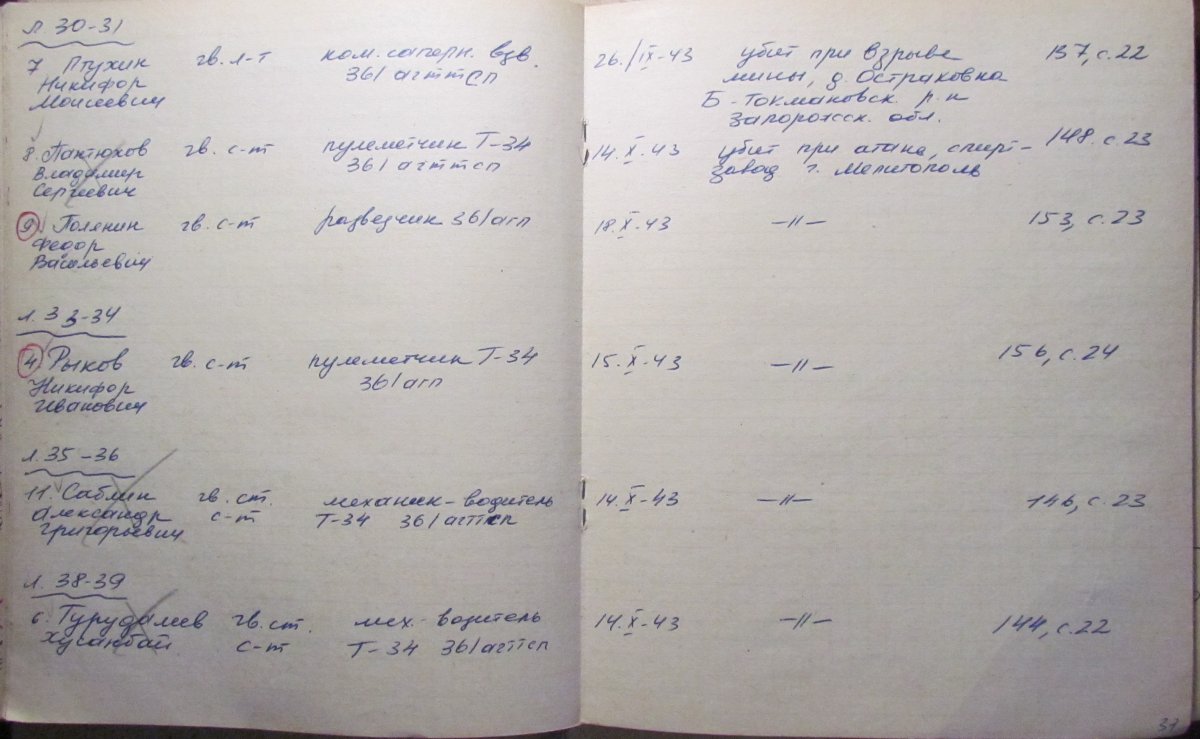 л. 30-31
7 Птухин гв. л-т ком. саперн. взв. 26./IX-43 убит при взрыве 137, с.22
Никифор 36/агттсп мины, д. Остраковка
Моисеевич Б-Токмановск. р-н
Запорожск. обл.
8. Пактюхов гв. с-т пулеметчик Т-34 14.X-43 убит при атаке, спирт- 148. с.23
Владимир 36/агттсп завод г. Мелитополь
Сергеевич
9. Полянин гв. с-т разведчик 36/агп 18.X-43 —〃— 153, с.23
Федор
Васильевич
л. 33-34
4. Рыков гв. с-т пулеметчик Т-34 15.X-43 —〃— 156, с.24
Никифор 36/агп
Иванович
л. 35-36
11. Саблин гв. ст. механик-водитель 14.X-43 —〃— 146, с.23
Александр с-т Т-34 36/агттсп
Григорьевич
л. 38-39
6. Турудалев гв. ст. мех.-водитель 14.X-43 —〃— 144, с.22
Хусанбай с-т Т-34 36/агттсп
37